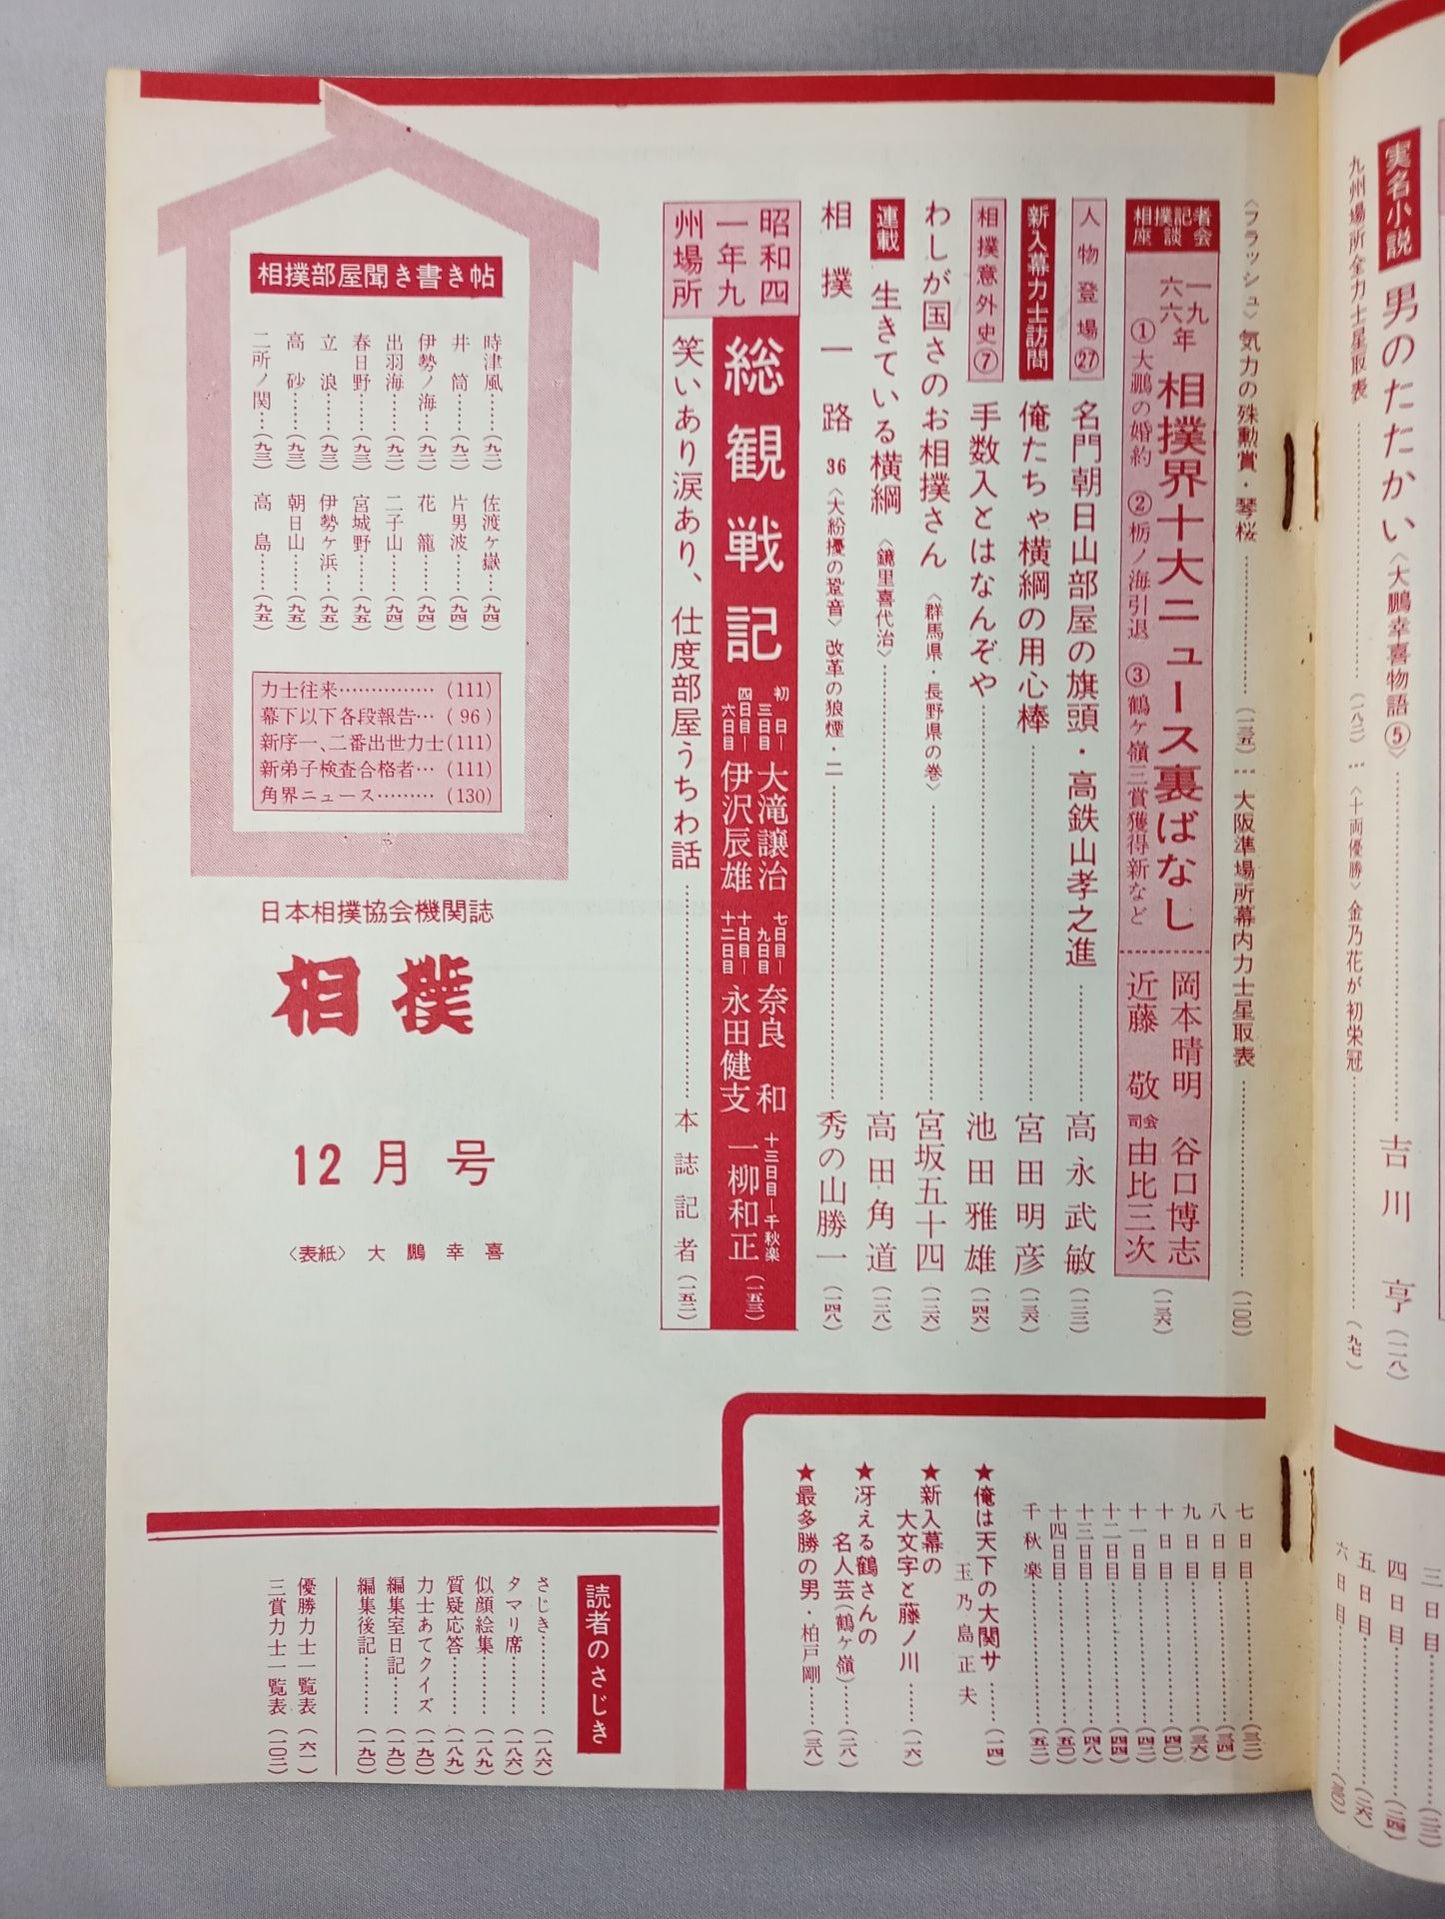 実名小説 男のたたかい〈大鵬幸喜物語⑤〉……吉川 亨(一一八)
九州場所全力士星取表……(一八二)
〈十両優勝〉金乃花が初栄冠……(九七)
〈フラッシュ〉気力の殊勲賞・琴桜……(一三五)
大阪準場所幕内力士星取表……(一〇〇)
相撲記者座談会
一九六六年 相撲界十大ニュース裏ばなし
①大鵬の婚約 ②栃ノ海引退 ③鶴ヶ嶺三賞獲得新など
岡本晴明 谷口博志
近藤 敬 司会 由比三次
(一三六)
人物登場㉗ 名門朝日山部屋の旗頭・高鉄山孝之進……高永武敏(一三二)
新入幕力士訪問 俺たちゃ横綱の用心棒……宮田明彦(一三六)
相撲意外史⑦ 手数入とはなんぞや……池田雅雄(一四六)
わしが国さのお相撲さん〈群馬県・長野県の巻〉……宮坂五十四(一二六)
連載 生きている横綱〈鏡里喜代治〉……高田角道(一二八)
相撲一路 36〈大紛擾の跫音〉改革の狼煙・二……秀の山勝一(一四八)
昭和四一年九州場所
総観戦記
初日―三日目 大滝譲治
四日目―六日目 伊沢辰雄
七日目―九日目 奈良 和
十日目―十二日目 永田健支
十三日目―千秋楽 一柳和正
(一五三)
笑いあり涙あり、仕度部屋うちわ話……本誌記者(一五二)
相撲部屋聞き書き帖
時津風……(九二)
井筒……(九二)
伊勢ノ海…(九二)
出羽海……(九二)
春日野……(九三)
立浪……(九三)
高砂……(九三)
二所ノ関…(九三)
佐渡ヶ嶽…(九四)
片男波……(九四)
花籠……(九四)
二子山……(九四)
宮城野……(九五)
伊勢ヶ浜…(九五)
朝日山……(九五)
高島……(九五)
力士往来……………(111)
幕下以下各段報告…( 96)
新序一、二番出世力士(111)
新弟子検査合格者…(111)
角界ニュース………(130)
日本相撲協会機関誌
相撲
12月号
〈表紙〉 大鵬幸喜
三日目……
四日目……(二四)
五日目……(二六)
六日目……
七日目……(三二)
八日目……(三四)
九日目……(三六)
十日目……(四〇)
十一日目……(四二)
十二日目……(四四)
十三日目……(四八)
十四日目……(五〇)
千秋楽……(五二)
★俺は天下の大関サ……(一四)
玉乃島正夫
★新入幕の
大文字と藤ノ川……(一六)
★冴える鶴さんの
名人芸(鶴ヶ嶺)……(二八)
★最多勝の男・柏戸剛……(三八)
読者のさじき
さじき……(一八六)
タマリ席……(一八六)
似顔絵集……(一八九)
質疑応答……(一八九)
力士あてクイズ(一九〇)
編集室日記……(一九〇)
編集後記……(一九〇)
優勝力士一覧表(六一)
三賞力士一覧表(一〇二)